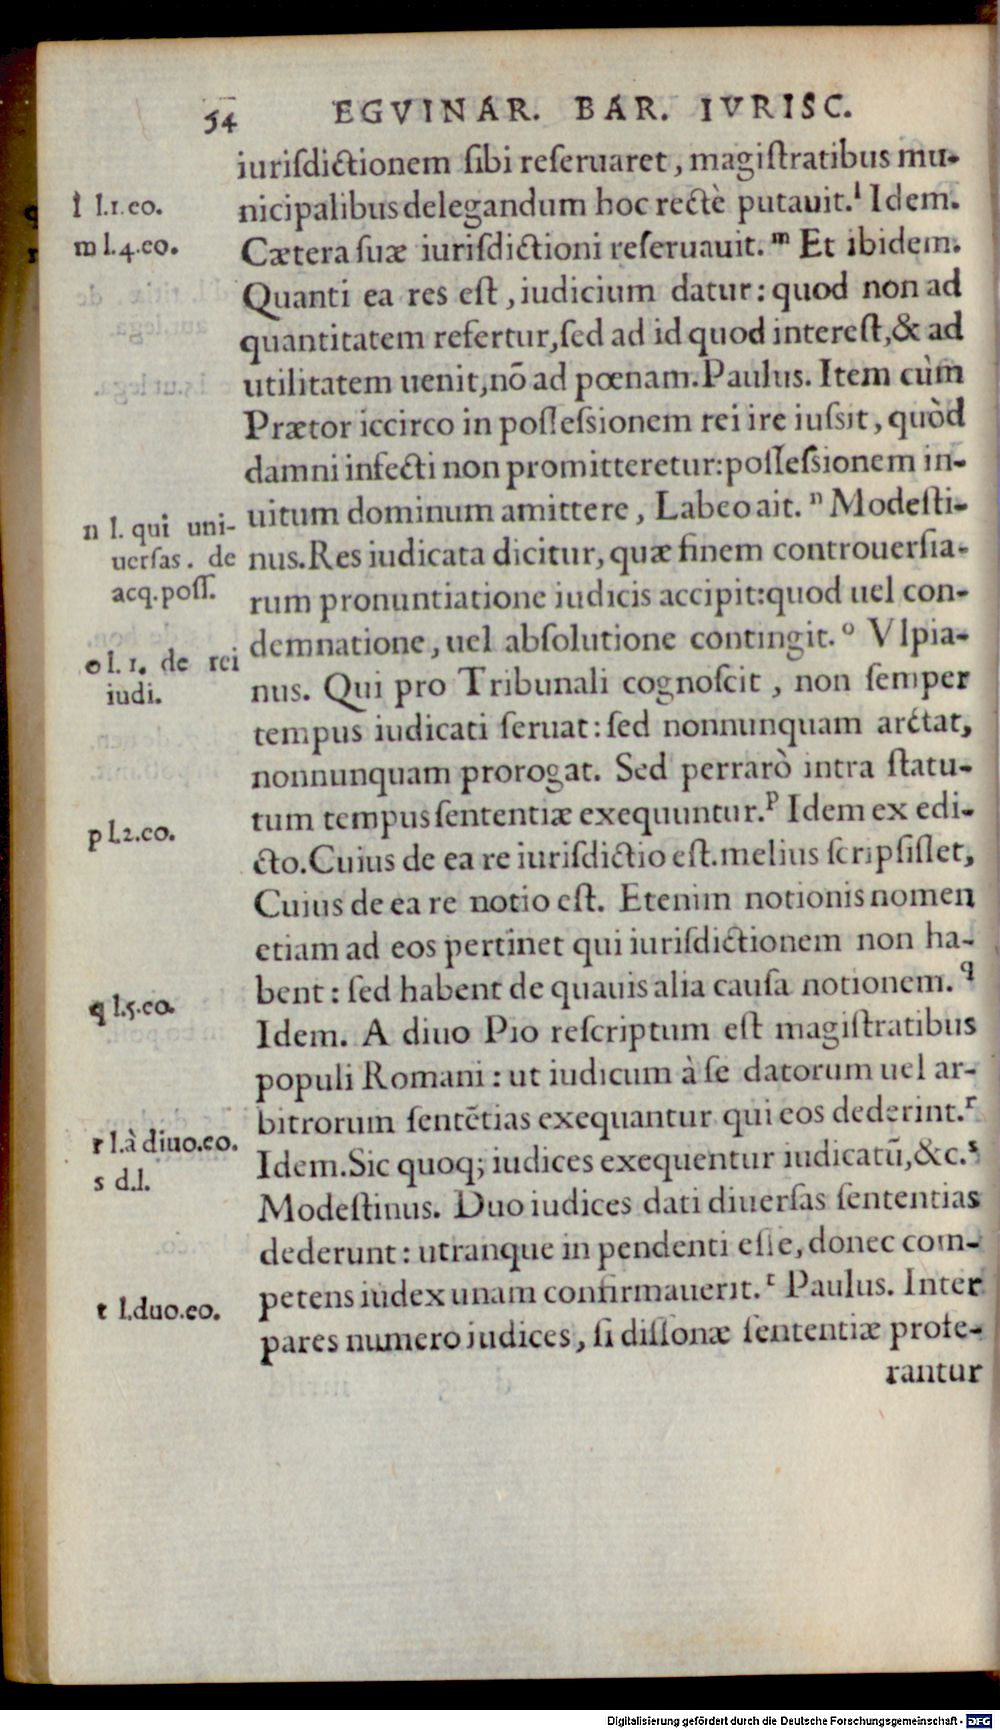 54 EGVINAR. BAR. IVRISC.
iuriſdictionem ſibi reſeruaret, magiſtratibus mu-
nicipalibus delegandum hoc rectè putauit.l Idem.
Cætera ſuæ iuriſdictioni reſeruauit.m Et ibidem.
Quanti ea res eſt, iudicium datur: quod non ad
quantitatem refertur, ſed ad id quod intereſt, & ad
utilitatem uenit, nō ad pœnam. Paulus. Item cùm
Prætor iccirco in poſſeſsionem rei ire iuſsit, quòd
damni infecti non promitteretur: poſſeſsionem in-
uitum dominum amittere, Labeo ait.n Modeſti-
nus. Res iudicata dicitur, quæ finem controuerſia-
rum pronuntiatione iudicis accipit: quod uel con-
demnatione, uel abſolutione contingit.o Vlpia-
nus. Qui pro Tribunali cognoſcit, non ſemper
tempus iudicati ſeruat: ſed nonnunquam arctat,
nonnunquam prorogat. Sed perrarò intra ſtatu-
tum tempus ſententiæ exequuntur.p Idem ex edi-
cto. Cuius de ea re iuriſdictio eſt. melius ſcripſiſſet,
Cuius de ea re notio eſt. Etenim notionis nomen
etiam ad eos pertinet qui iuriſdictionem non ha-
bent: ſed habent de quauis alia cauſa notionem.q
Idem. A diuo Pio reſcriptum eſt magiſtratibus
populi Romani: ut iudicum à ſe datorum uel ar-
bitrorum ſentētias exequantur qui eos dederint.r
Idem. Sic quoq; iudices exequentur iudicatū, &c.s
Modeſtinus. Duo iudices dati diuerſas ſententias
dederunt: utranque in pendenti eſſe, donec com-
petens iudex unam confirmauerit.t Paulus. Inter
pares numero iudices, ſi diſſonæ ſententiæ profe-
rantur
l l.1.eo.
m l.4.eo.
n l. qui uni-
uerſas. de
acq. poſſ.
o l. 1. de rei
iudi.
p l.2.eo.
q l.5.eo.
r l.à diuo.eo.
s d.l.
t l.duo.eo.
Digitalisierung gefördert durch die Deutsche Forschungsgemeinschaft - DFG